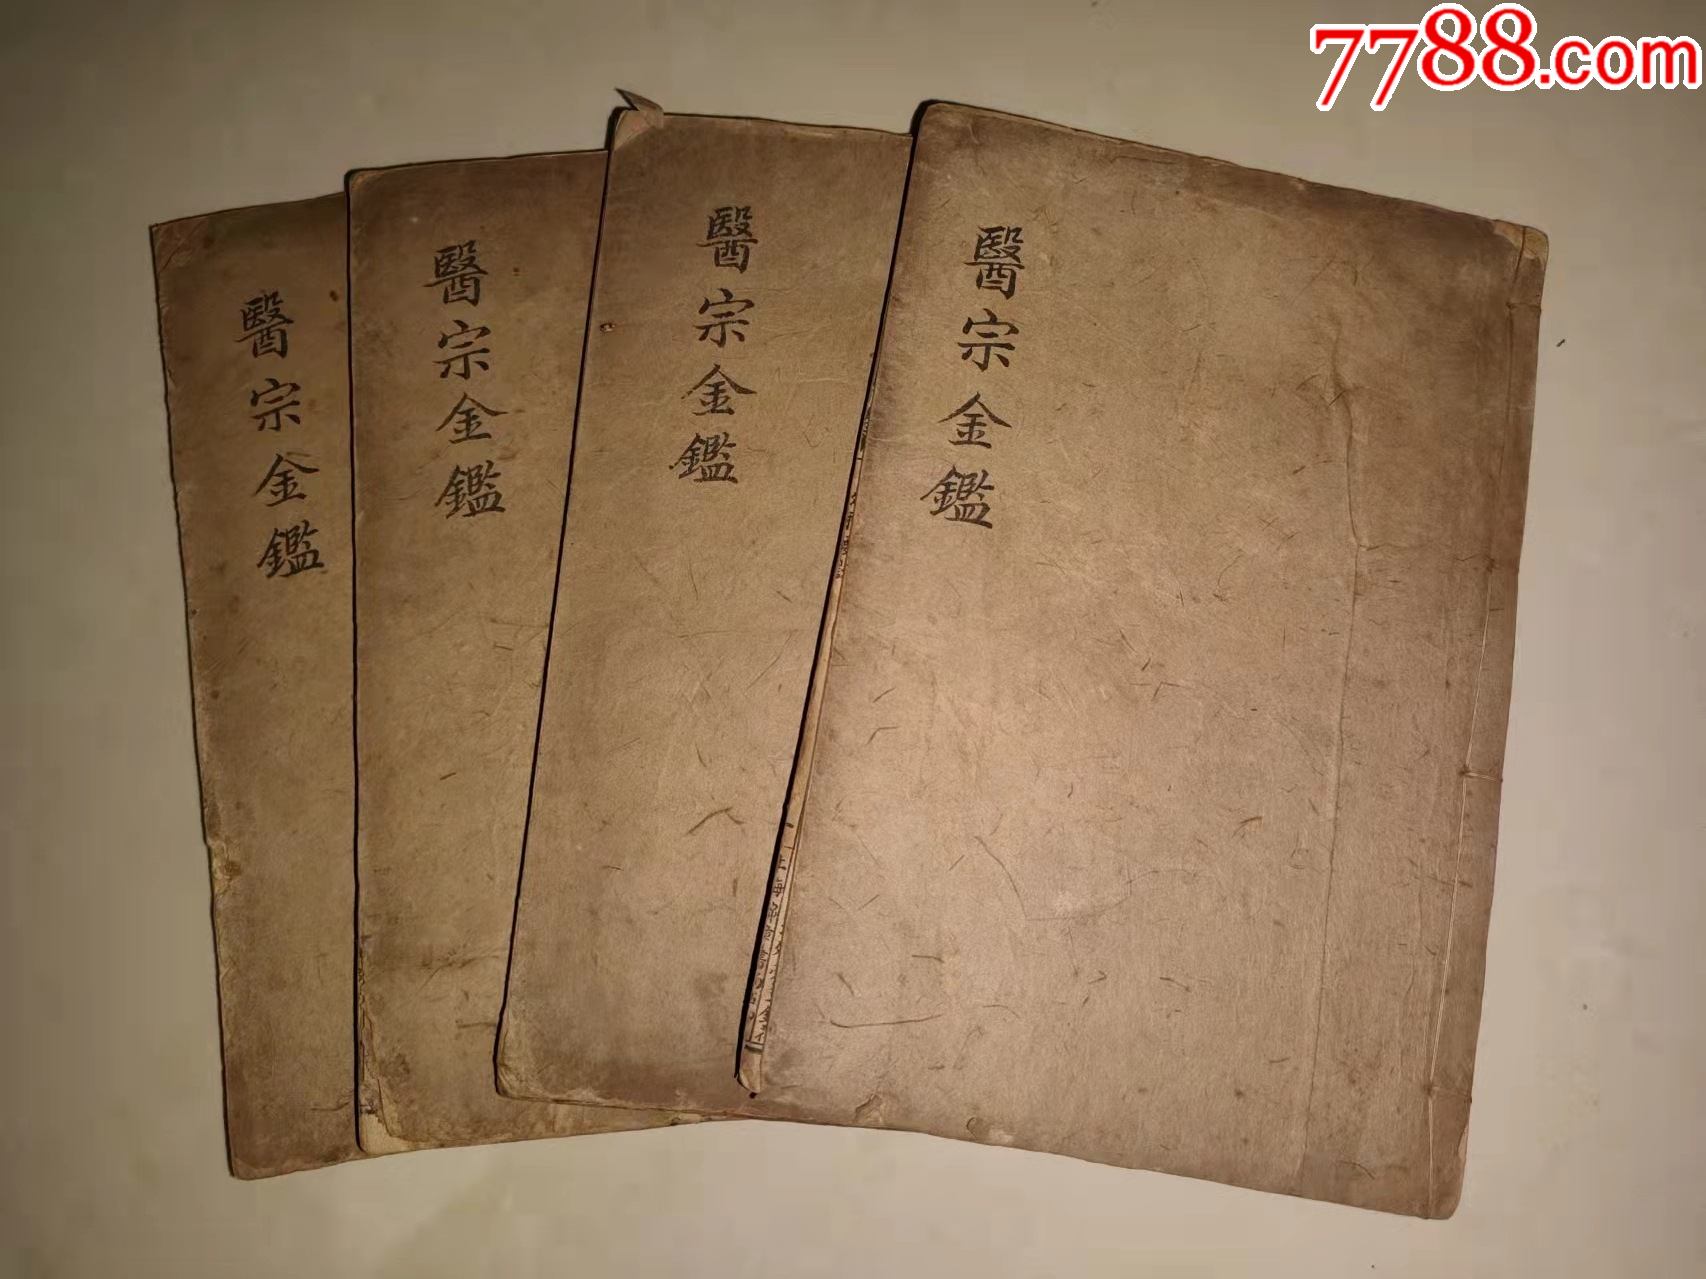 7788.com
醫宗金鑑
醫宗金鑑
醫宗金鑑
醫宗金鑑